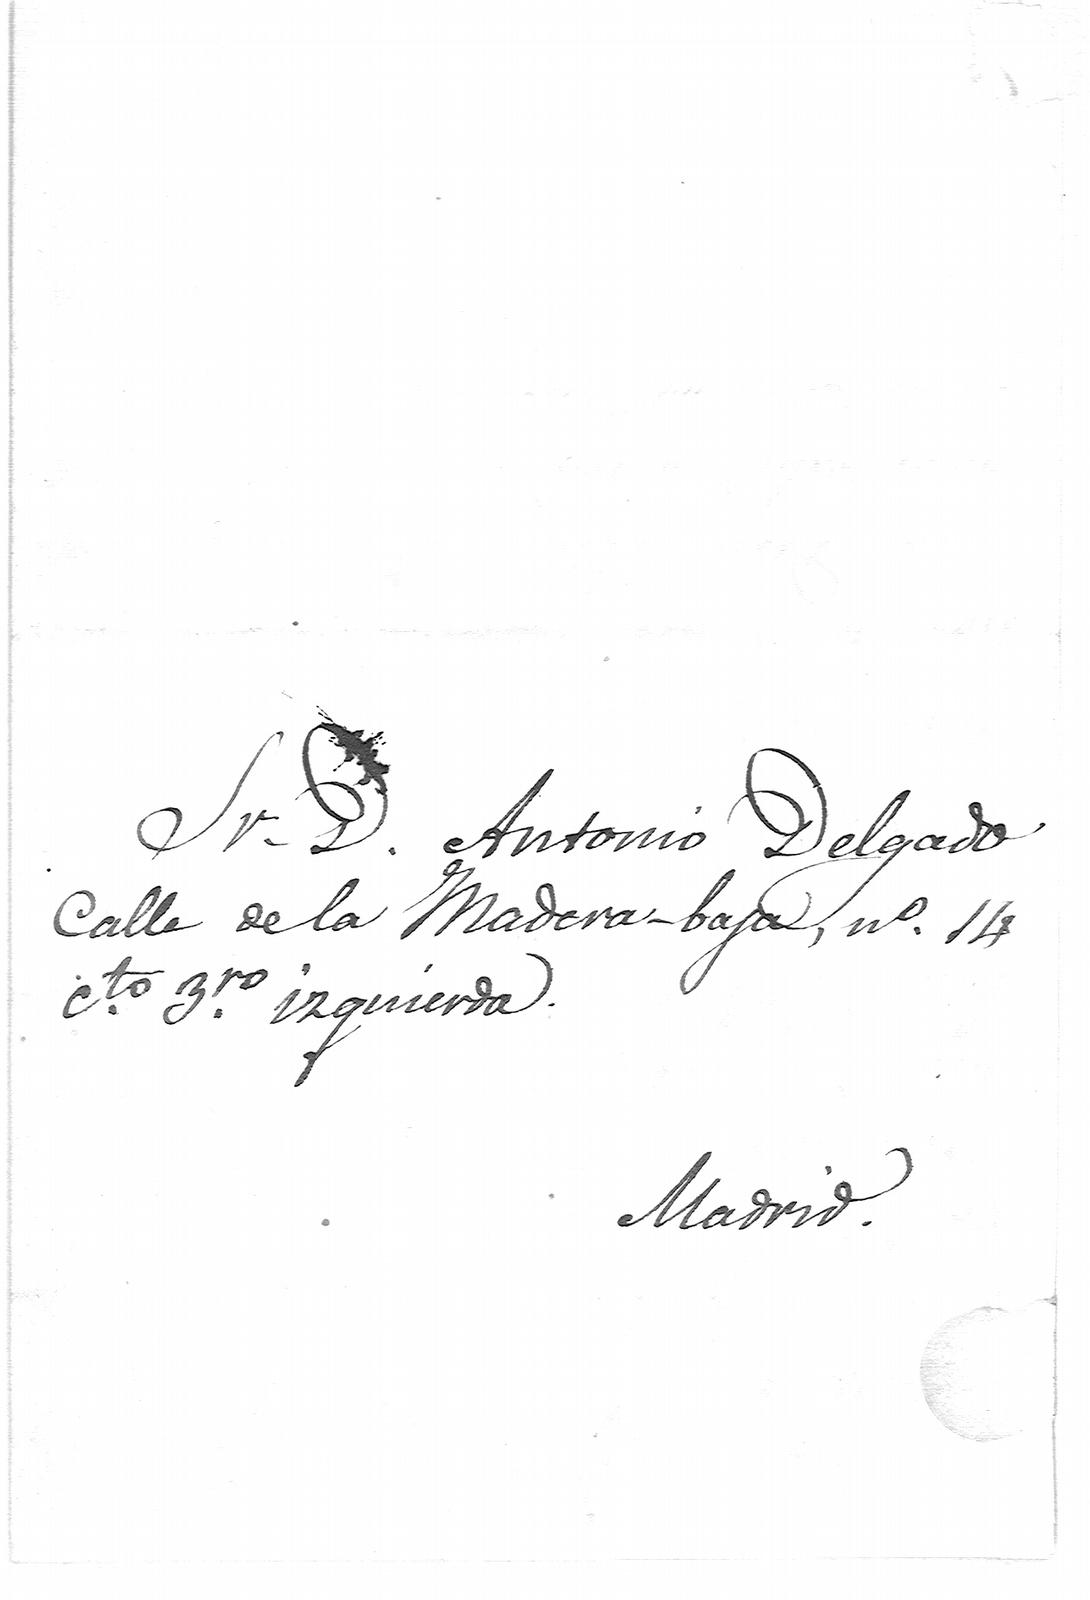 Sr. D. Antonio Delgado
Calle de la Madera-baja, nº. 14
cto. 3ro. izquierda.
Madrid.